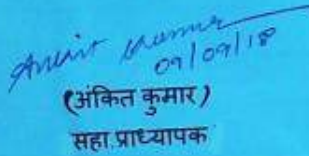 Ankit Kumar
09/09/18
(अंकित कुमार)
सहा.प्राध्यापक